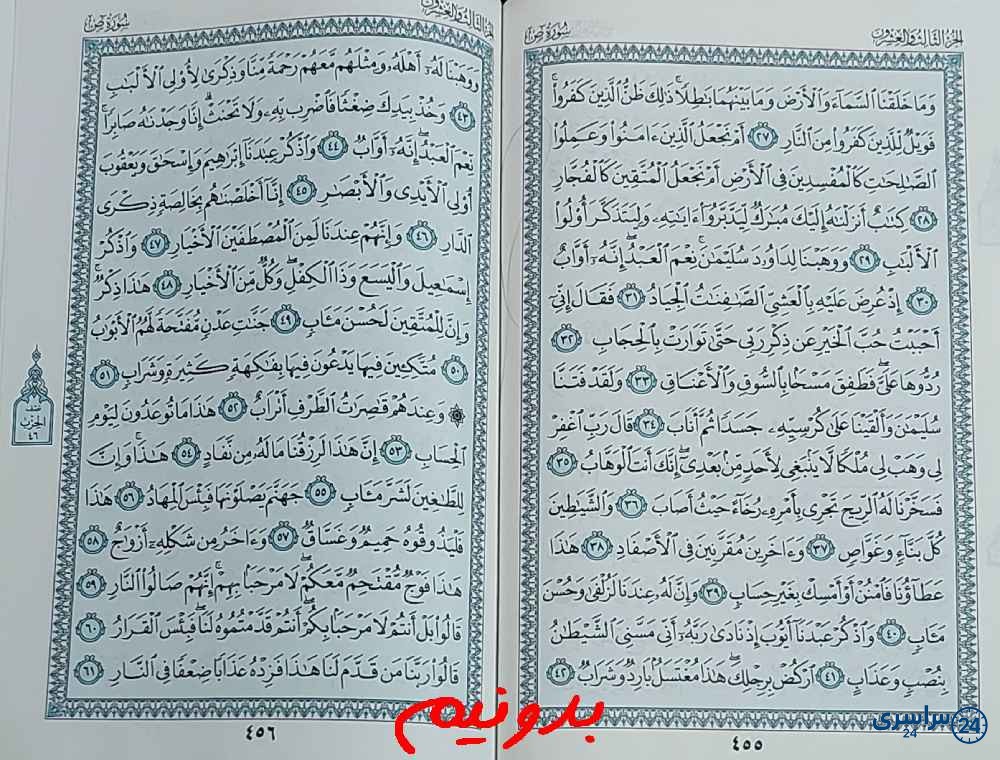 الجزء الثالث والعشرون
سورة ص
وَمَا خَلَقْنَا السَّمَاءَ وَالْأَرْضَ وَمَا بَيْنَهُمَا بَاطِلًا ذَٰلِكَ ظَنُّ الَّذِينَ كَفَرُوا
فَوَيْلٌ لِلَّذِينَ كَفَرُوا مِنَ النَّارِ ٢٧ أَمْ نَجْعَلُ الَّذِينَ ءَامَنُوا وَعَمِلُوا
الصَّالِحَاتِ كَالْمُفْسِدِينَ فِي الْأَرْضِ أَمْ نَجْعَلُ الْمُتَّقِينَ كَالْفُجَّارِ
٢٨ كِتَابٌ أَنْزَلْنَاهُ إِلَيْكَ مُبَارَكٌ لِيَدَّبَّرُوا ءَايَاتِهِ وَلِيَتَذَكَّرَ أُولُوا
الْأَلْبَابِ ٢٩ وَوَهَبْنَا لِدَاوُودَ سُلَيْمَانَ نِعْمَ الْعَبْدُ إِنَّهُ أَوَّابٌ
٣٠ إِذْ عُرِضَ عَلَيْهِ بِالْعَشِيِّ الصَّافِنَاتُ الْجِيَادُ ٣١ فَقَالَ إِنِّي
أَحْبَبْتُ حُبَّ الْخَيْرِ عَنْ ذِكْرِ رَبِّي حَتَّى تَوَارَتْ بِالْحِجَابِ ٣٢
رُدُّوهَا عَلَيَّ فَطَفِقَ مَسْحًا بِالسُّوقِ وَالْأَعْنَاقِ ٣٣ وَلَقَدْ فَتَنَّا
سُلَيْمَانَ وَأَلْقَيْنَا عَلَى كُرْسِيِّهِ جَسَدًا ثُمَّ أَنَابَ ٣٤ قَالَ رَبِّ اغْفِرْ
لِي وَهَبْ لِي مُلْكًا لَا يَنْبَغِي لِأَحَدٍ مِنْ بَعْدِي إِنَّكَ أَنْتَ الْوَهَّابُ ٣٥
فَسَخَّرْنَا لَهُ الرِّيحَ تَجْرِي بِأَمْرِهِ رُخَاءً حَيْثُ أَصَابَ ٣٦ وَالشَّيَاطِينَ
كُلَّ بَنَّاءٍ وَغَوَّاصٍ ٣٧ وَءَاخَرِينَ مُقَرَّنِينَ فِي الْأَصْفَادِ ٣٨ هَذَا
عَطَاؤُنَا فَامْنُنْ أَوْ أَمْسِكْ بِغَيْرِ حِسَابٍ ٣٩ وَإِنَّ لَهُ عِنْدَنَا لَزُلْفَى وَحُسْنَ
مَـَٔابٍ ٤٠ وَاذْكُرْ عَبْدَنَا أَيُّوبَ إِذْ نَادَى رَبَّهُ أَنِّي مَسَّنِيَ الشَّيْطَانُ
بِنُصْبٍ وَعَذَابٍ ٤١ ارْكُضْ بِرِجْلِكَ هَذَا مُغْتَسَلٌ بَارِدٌ وَشَرَابٌ ٤٢
٤٥٥
الجزء الثالث والعشرون
سورة ص
وَوَهَبْنَا لَهُ أَهْلَهُ وَمِثْلَهُمْ مَعَهُمْ رَحْمَةً مِنَّا وَذِكْرَى لِأُولِي الْأَلْبَابِ
٤٣ وَخُذْ بِيَدِكَ ضِغْثًا فَاضْرِبْ بِهِ وَلَا تَحْنَثْ إِنَّا وَجَدْنَاهُ صَابِرًا
نِعْمَ الْعَبْدُ إِنَّهُ أَوَّابٌ ٤٤ وَاذْكُرْ عِبَادَنَا إِبْرَاهِيمَ وَإِسْحَاقَ وَيَعْقُوبَ
أُولِي الْأَيْدِي وَالْأَبْصَارِ ٤٥ إِنَّا أَخْلَصْنَاهُمْ بِخَالِصَةٍ ذِكْرَى
الدَّارِ ٤٦ وَإِنَّهُمْ عِنْدَنَا لَمِنَ الْمُصْطَفَيْنَ الْأَخْيَارِ ٤٧ وَاذْكُرْ
إِسْمَاعِيلَ وَالْيَسَعَ وَذَا الْكِفْلِ وَكُلٌّ مِنَ الْأَخْيَارِ ٤٨ هَذَا ذِكْرٌ
وَإِنَّ لِلْمُتَّقِينَ لَحُسْنَ مَـَٔابٍ ٤٩ جَنَّاتِ عَدْنٍ مُفَتَّحَةً لَهُمُ الْأَبْوَابُ
٥٠ مُتَّكِئِينَ فِيهَا يَدْعُونَ فِيهَا بِفَاكِهَةٍ كَثِيرَةٍ وَشَرَابٍ ٥١
وَعِنْدَهُمْ قَاصِرَاتُ الطَّرْفِ أَتْرَابٌ ٥٢ هَذَا مَا تُوعَدُونَ لِيَوْمِ
الْحِسَابِ ٥٣ إِنَّ هَذَا لَرِزْقُنَا مَا لَهُ مِنْ نَفَادٍ ٥٤ هَذَا وَإِنَّ
لِلطَّاغِينَ لَشَرَّ مَـَٔابٍ ٥٥ جَهَنَّمَ يَصْلَوْنَهَا فَبِئْسَ الْمِهَادُ ٥٦ هَذَا
فَلْيَذُوقُوهُ حَمِيمٌ وَغَسَّاقٌ ٥٧ وَءَاخَرُ مِنْ شَكْلِهِ أَزْوَاجٌ ٥٨
هَذَا فَوْجٌ مُقْتَحِمٌ مَعَكُمْ لَا مَرْحَبًا بِهِمْ إِنَّهُمْ صَالُوا النَّارِ ٥٩
قَالُوا بَلْ أَنْتُمْ لَا مَرْحَبًا بِكُمْ أَنْتُمْ قَدَّمْتُمُوهُ لَنَا فَبِئْسَ الْقَرَارُ ٦٠
قَالُوا رَبَّنَا مَنْ قَدَّمَ لَنَا هَذَا فَزِدْهُ عَذَابًا ضِعْفًا فِي النَّارِ ٦١
نصف
الحزب
٤٦
٤٥٦
بدونیم
سراسری 24
24